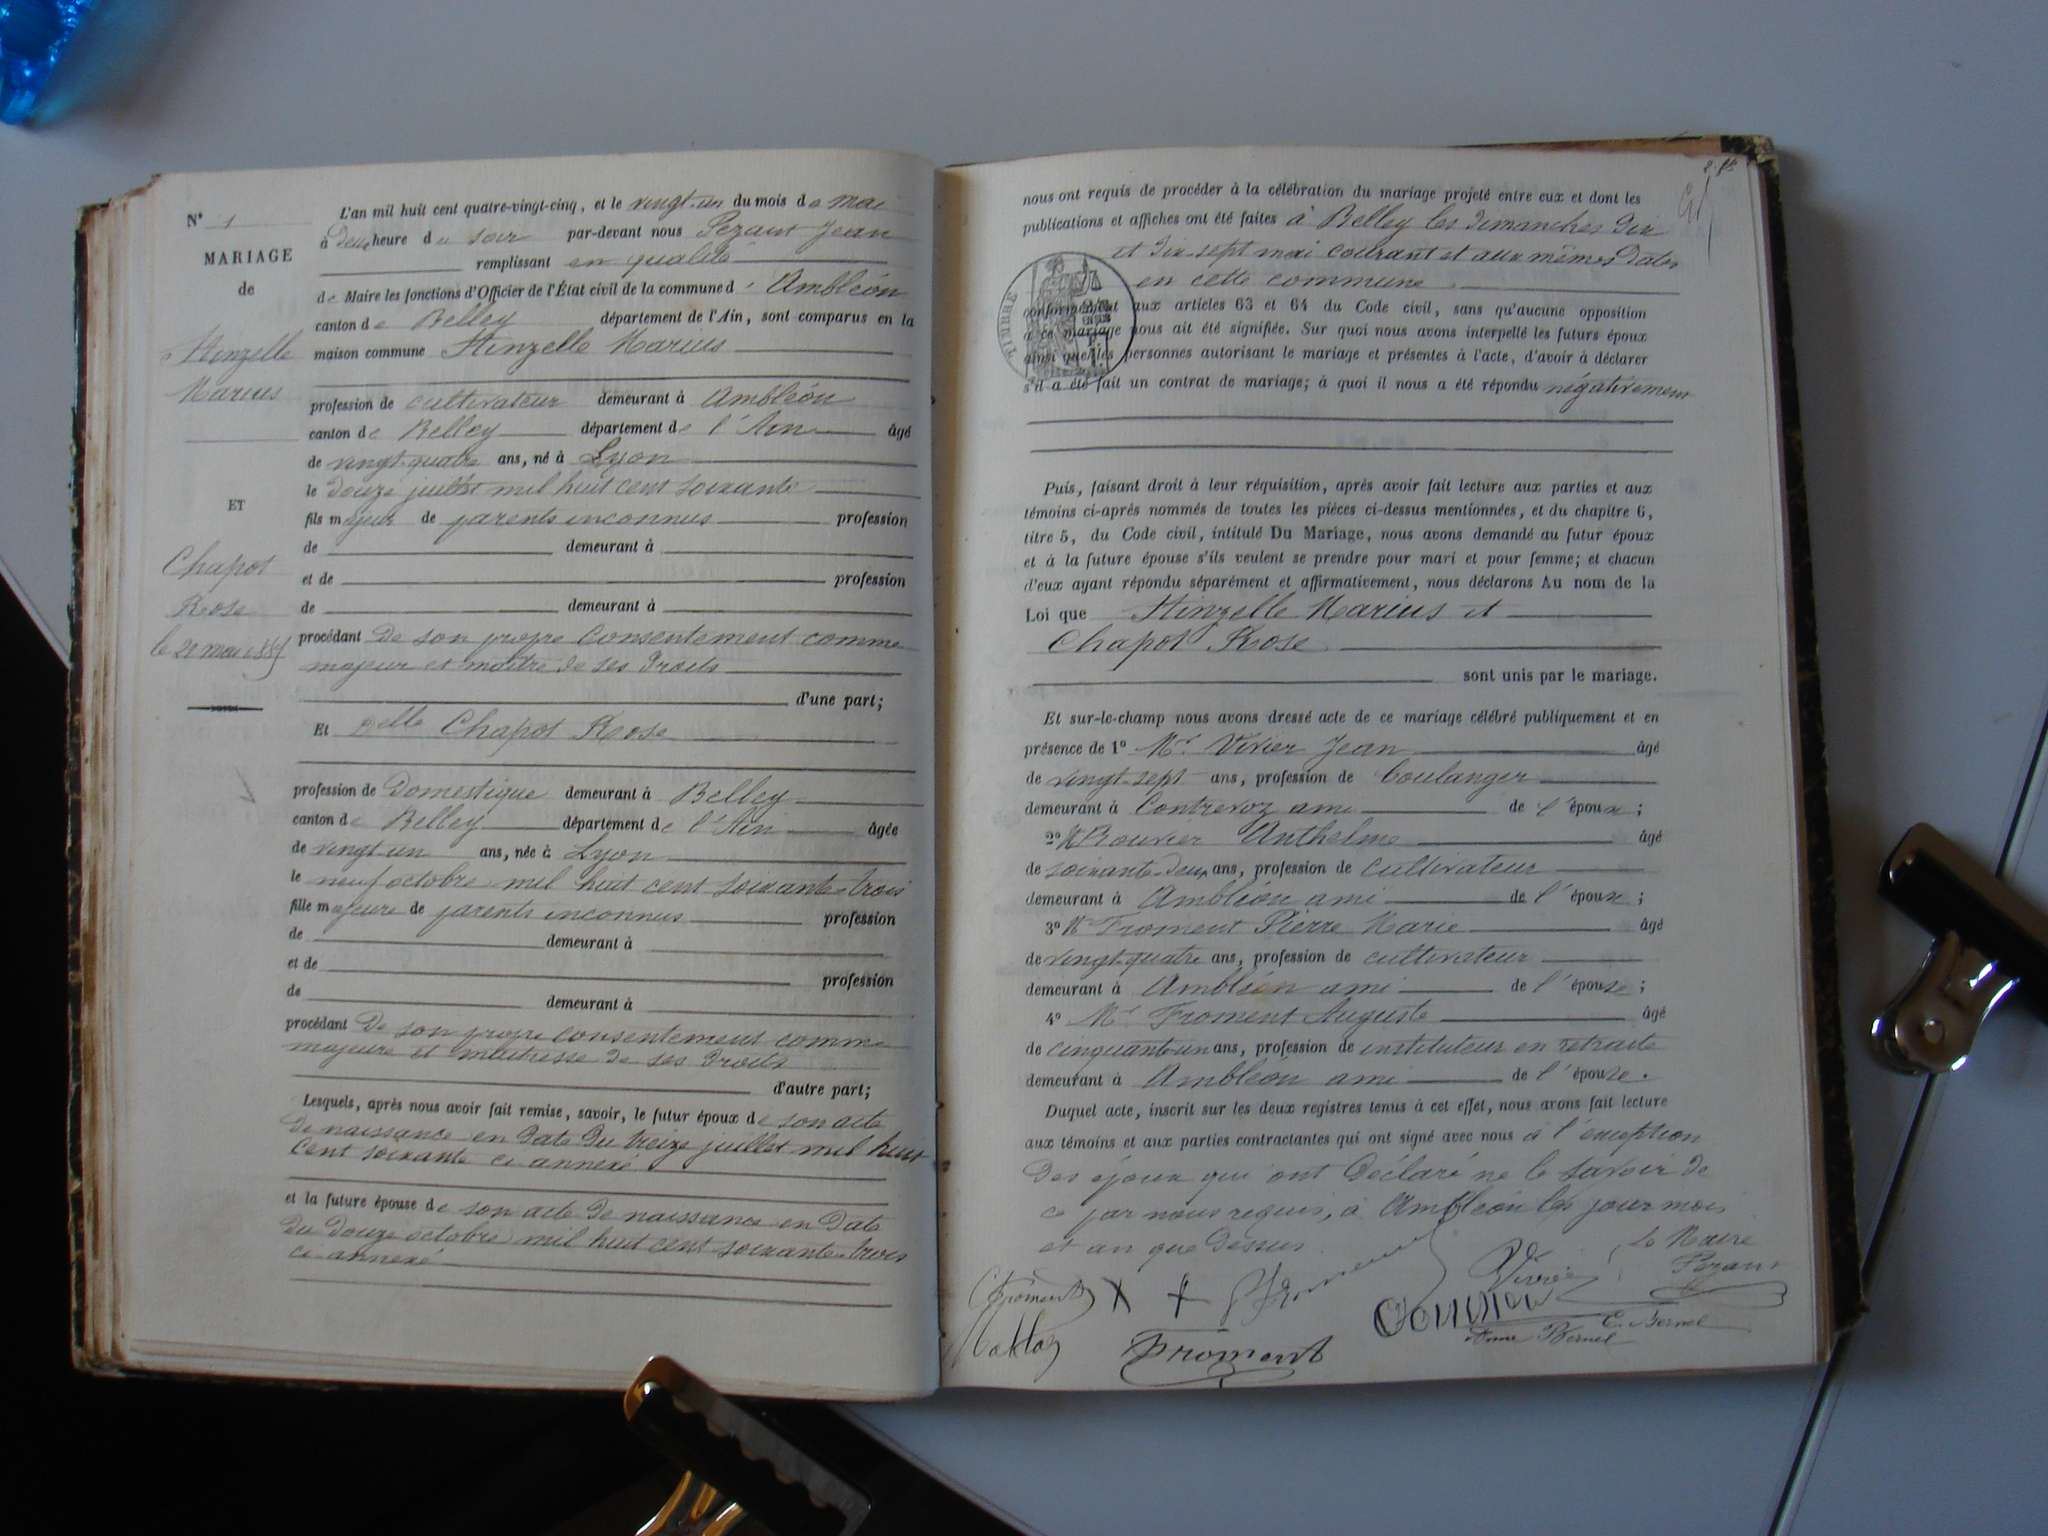 N° 1
MARIAGE
de
Hinzelle
Marius
ET
Chapot
Rose
le 21 mai 1885
L'an mil huit cent quatre-vingt-cinq, et le vingt-un du mois de mai
à deux heure du soir par-devant nous Pezant Jean
remplissant en qualité
de Maire les fonctions d'Officier de l'État civil de la commune d'Ambléon
canton de Belley département de l'Ain, sont comparus en la
maison commune Hinzelle Marius
profession de cultivateur demeurant à Ambléon
canton de Belley département de l'Ain âgé
de vingt-quatre ans, né à Lyon
le douze juillet mil huit cent soixante
fils majeur de parents inconnus profession
de demeurant à
et de profession
de demeurant à
procédant de son propre consentement comme
majeur et maître de ses droits
d'une part;
Et Delle Chapot Rose
profession de Domestique demeurant à Belley
canton de Belley département de l'Ain âgée
de vingt-un ans, née à Lyon
le neuf octobre mil huit cent soixante-trois
fille majeure de parents inconnus profession
de demeurant à
et de profession
de demeurant à
procédant de son propre consentement comme
majeure et maîtresse de ses droits
d'autre part;
Lesquels, après nous avoir fait remise, savoir, le futur époux de son acte
de naissance en date du treize juillet mil huit
cent soixante ci annexé
et la future épouse de son acte de naissance en date
du douze octobre mil huit cent soixante-trois
ci annexé
nous ont requis de procéder à la célébration du mariage projeté entre eux et dont les
publications et affiches ont été faites à Belley les dimanches dix
et dix-sept mai courant et aux mêmes dates
en cette commune
TIMBRE
conformément aux articles 63 et 64 du Code civil, sans qu'aucune opposition
à ce mariage nous ait été signifiée. Sur quoi nous avons interpellé les futurs époux
ainsi que les personnes autorisant le mariage et présentes à l'acte, d'avoir à déclarer
s'il a été fait un contrat de mariage; à quoi il nous a été répondu négativement
Puis, faisant droit à leur réquisition, après avoir fait lecture aux parties et aux
témoins ci-après nommés de toutes les pièces ci-dessus mentionnées, et du chapitre 6,
titre 5, du Code civil, intitulé Du Mariage, nous avons demandé au futur époux
et à la future épouse s'ils veulent se prendre pour mari et pour femme; et chacun
d'eux ayant répondu séparément et affirmativement, nous déclarons Au nom de la
Loi que Hinzelle Marius et
Chapot Rose
sont unis par le mariage.
Et sur-le-champ nous avons dressé acte de ce mariage célébré publiquement et en
présence de 1° Mr Vivier Jean âgé
de vingt-sept ans, profession de boulanger
demeurant à Contrevoz ami de l'époux;
2° Mr Bouvier Anthelme âgé
de soixante-deux ans, profession de cultivateur
demeurant à Ambléon ami de l'époux;
3° Mr Froment Pierre Marie âgé
de vingt-quatre ans, profession de cultivateur
demeurant à Ambléon ami de l'épouse;
4° Mr Froment Auguste âgé
de cinquante-un ans, profession de instituteur en retraite
demeurant à Ambléon ami de l'épouse.
Duquel acte, inscrit sur les deux registres tenus à cet effet, nous avons fait lecture
aux témoins et aux parties contractantes qui ont signé avec nous à l'exception
des époux qui ont déclaré ne le savoir de
ce par nous requis, à Ambléon les jour mois
et an que dessus.
Le Maire
Pezant
Froment
Vivier
Froment
C. Bernel
Bernel